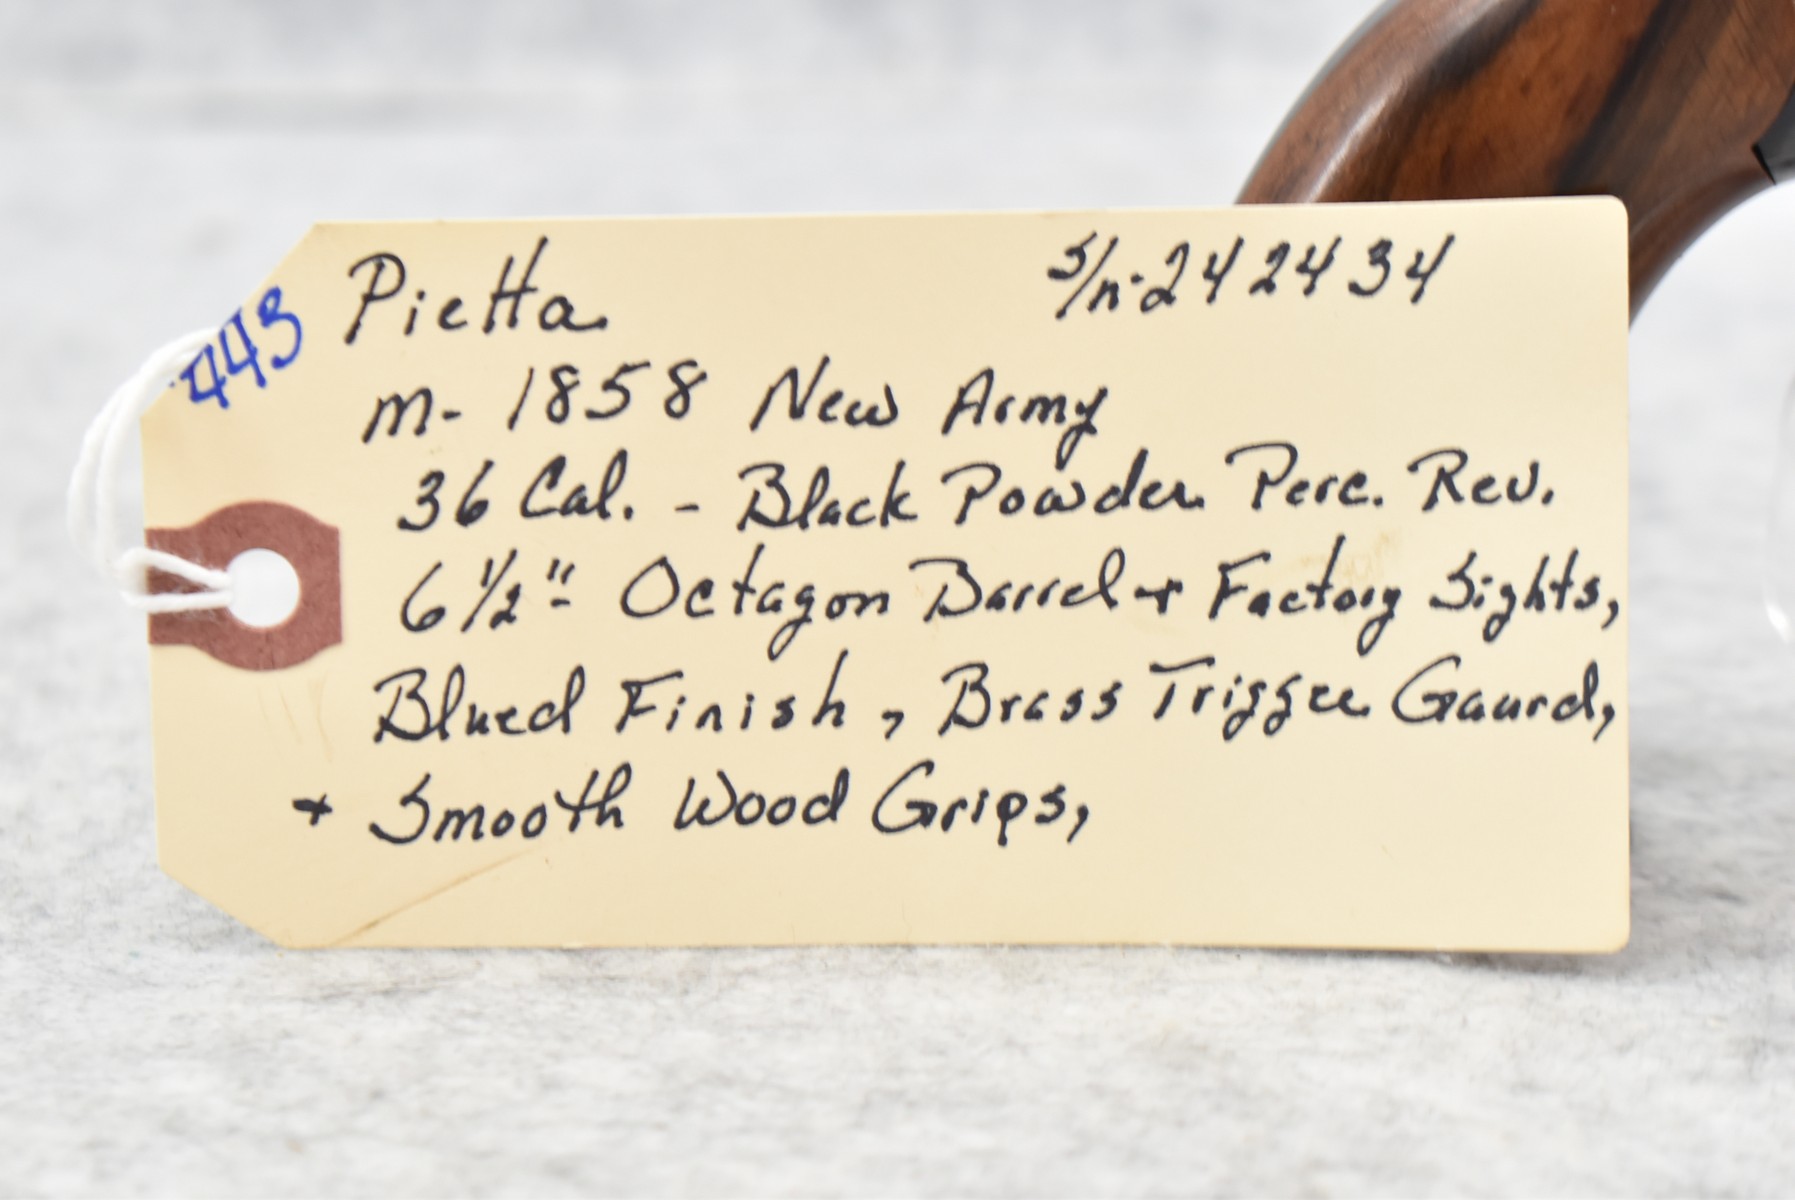 443
Pietta
s/n-242434
m- 1858 New Army
36 Cal. - Black Powder Perc. Rev.
6 1/2"- Octagon Barrel + Factory Sights,
Blued Finish, Brass Trigger Gaurd,
+ Smooth Wood Grips,